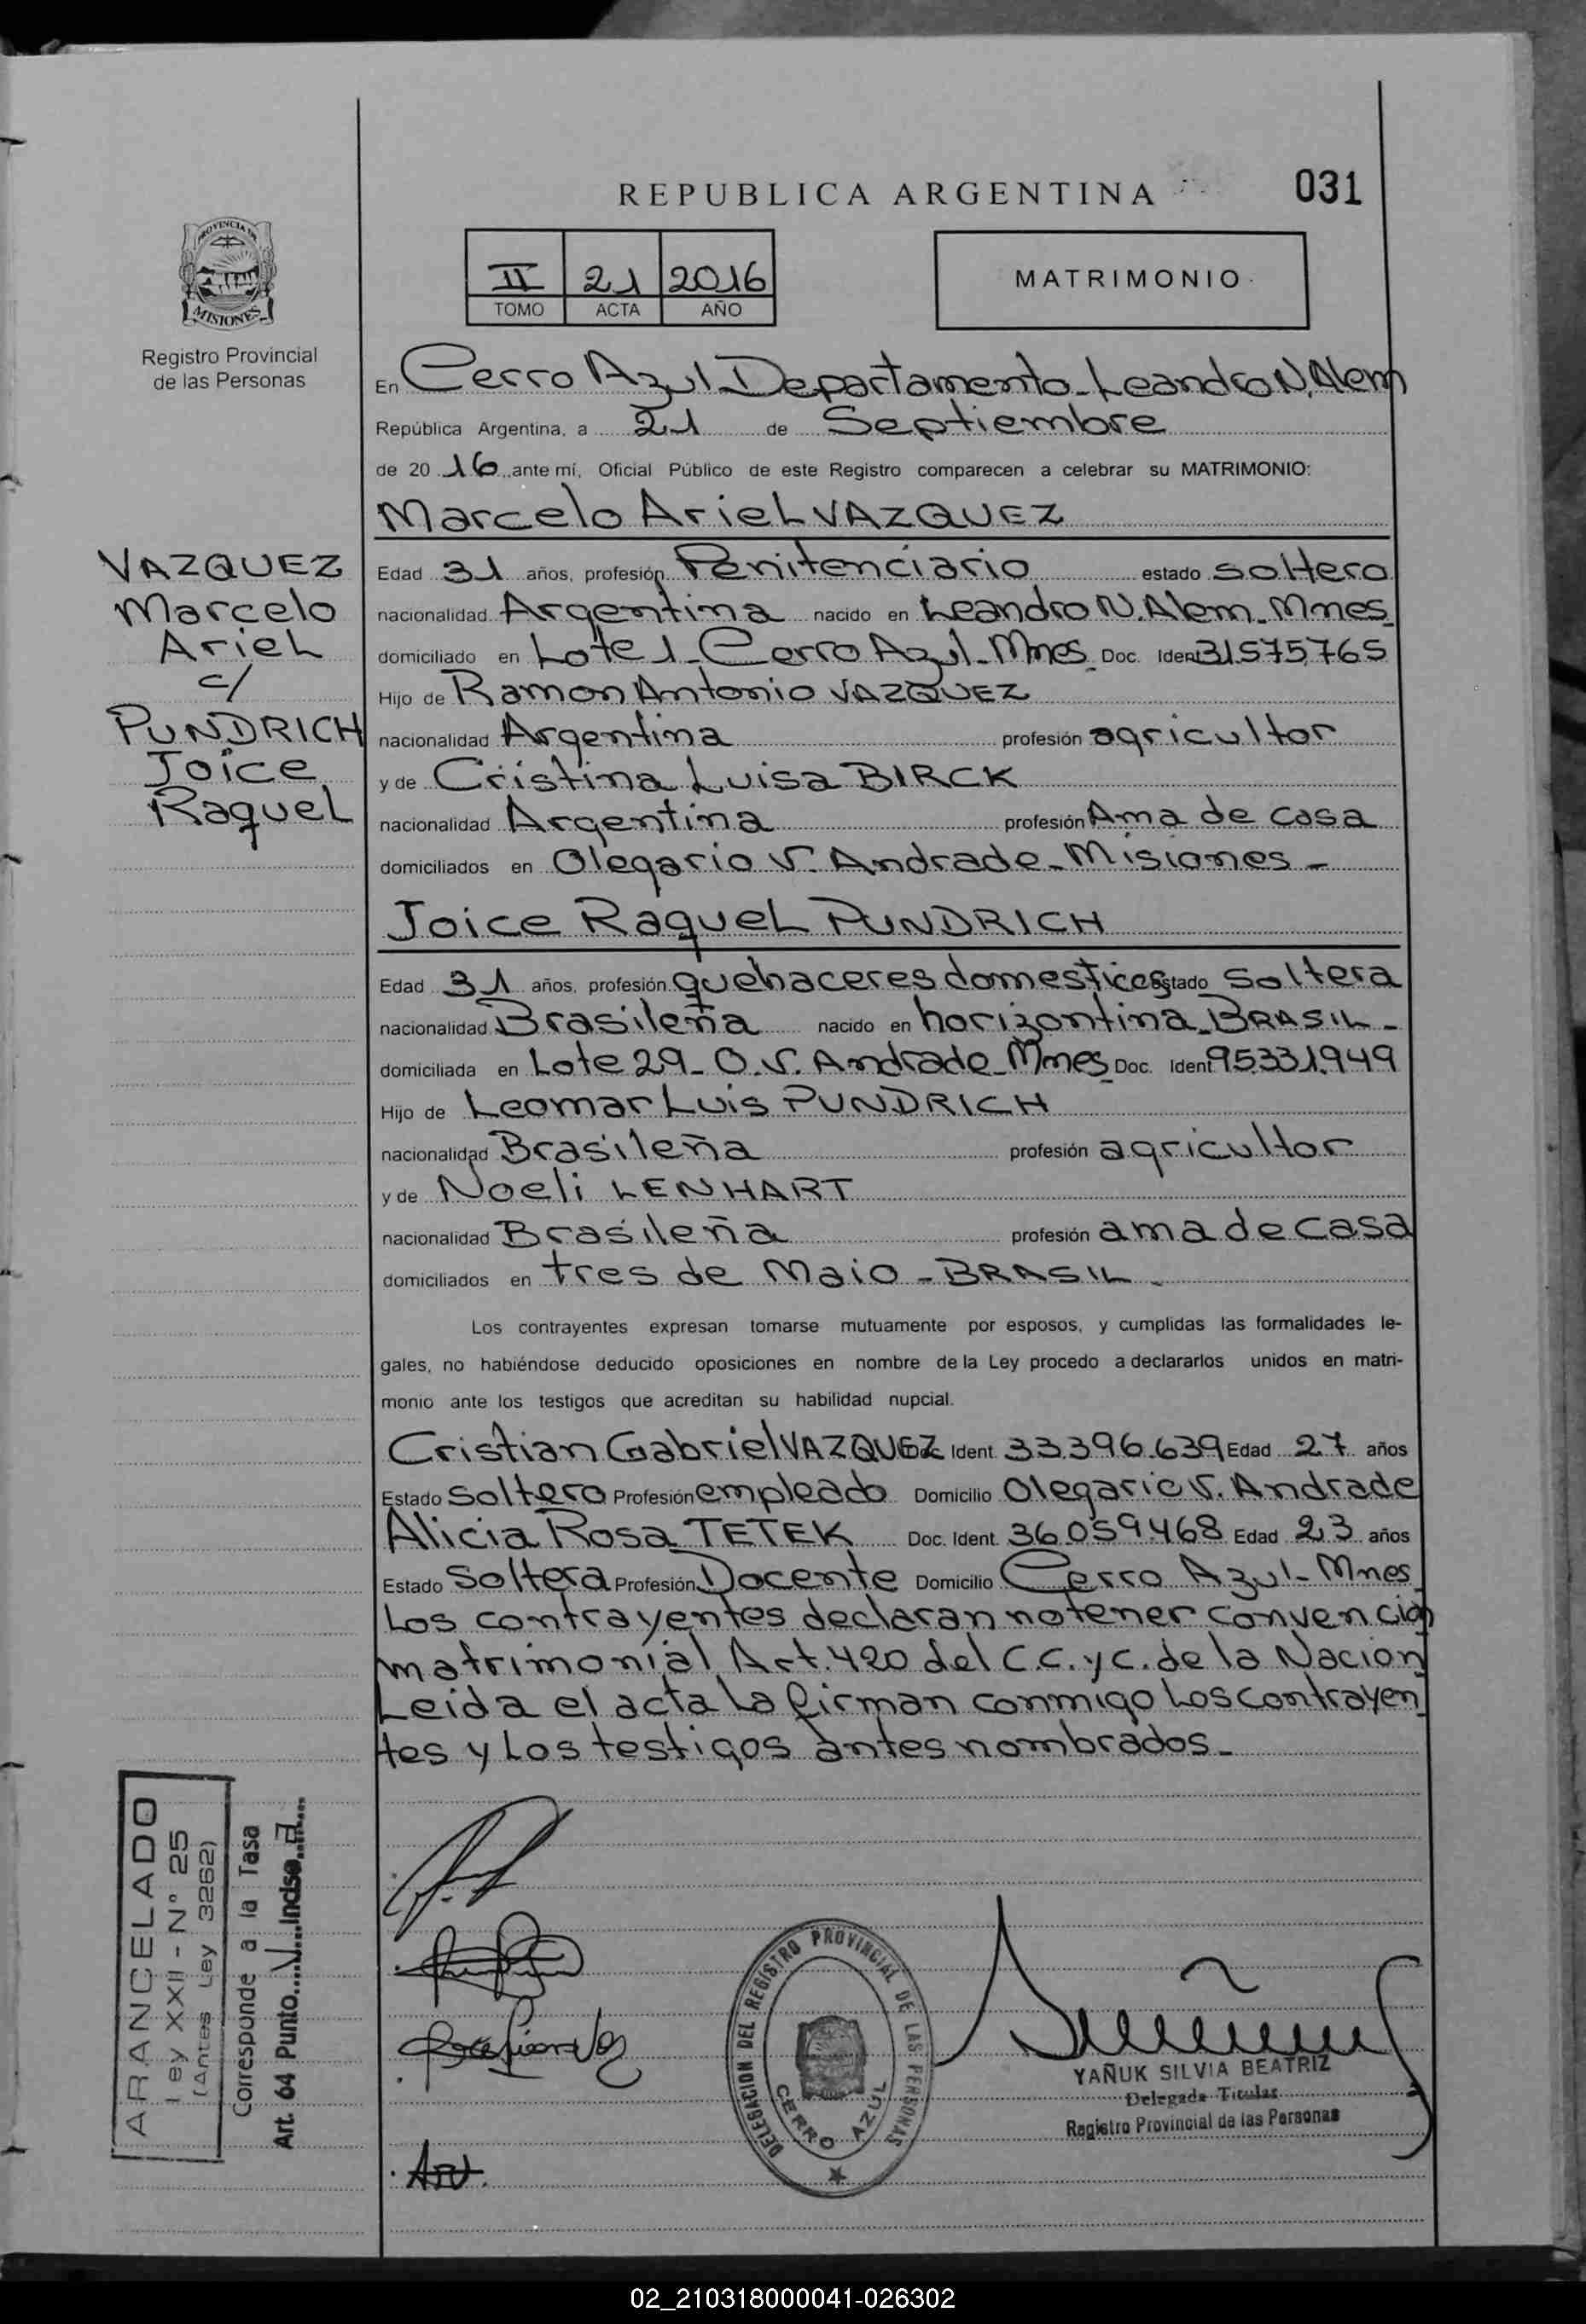 REPUBLICA ARGENTINA
031
PROVINCIA DE
MISIONES
Registro Provincial
de las Personas
II 21 2016
TOMO ACTA AÑO
MATRIMONIO
En Cerro Azul Departamento Leandro N. Alem
República Argentina, a 21 de Septiembre
de 20 16 ante mí, Oficial Público de este Registro comparecen a celebrar su MATRIMONIO:
Marcelo Ariel VAZQUEZ
VAZQUEZ
Marcelo
Ariel
c/
PUNDRICH
Joice
Raquel
Edad 31 años, profesión Penitenciario estado soltero
nacionalidad Argentina nacido en Leandro N. Alem - Mnes
domiciliado en Lote 1 - Cerro Azul - Mnes Doc. Ident 31575765
Hijo de Ramon Antonio VAZQUEZ
nacionalidad Argentina profesión agricultor
y de Cristina Luisa BIRCK
nacionalidad Argentina profesión Ama de casa
domiciliados en Olegario V. Andrade - Misiones -
Joice Raquel PUNDRICH
Edad 31 años, profesión quehaceres domesticos estado soltera
nacionalidad Brasileña nacido en horizontina - BRASIL -
domiciliada en Lote 29 - O.V. Andrade - Mnes Doc. Ident 95.331.949
Hijo de Leomar Luis PUNDRICH
nacionalidad Brasileña profesión agricultor
y de Noeli LENHART
nacionalidad Brasileña profesión ama de casa
domiciliados en tres de Maio - BRASIL -
Los contrayentes expresan tomarse mutuamente por esposos, y cumplidas las formalidades le-
gales, no habiéndose deducido oposiciones en nombre de la Ley procedo a declararlos unidos en matri-
monio ante los testigos que acreditan su habilidad nupcial.
Cristian Gabriel VAZQUEZ Doc. Ident. 33.396.639 Edad 27 años
Estado soltero Profesión empleado Domicilio Olegario V. Andrade
Alicia Rosa TETEK Doc. Ident. 36.059.468 Edad 23 años
Estado soltera Profesión Docente Domicilio Cerro Azul - Mnes
Los contrayentes declaran no tener convención
matrimonial Art. 420 del C.C. y C. de la Nación
Leida el acta La firman conmigo Los contrayen
tes y Los testigos antes nombrados -
ARANCELADO
Ley XXII - N° 25
(Antes Ley 3262)
Corresponde a la Tasa
Art. 64 Punto... Inciso...
DELEGACION DEL REGISTRO PROVINCIAL DE LAS PERSONAS
CERRO AZUL
YAÑUK SILVIA BEATRIZ
Delegada Titular
Registro Provincial de las Personas
02_210318000041-026302